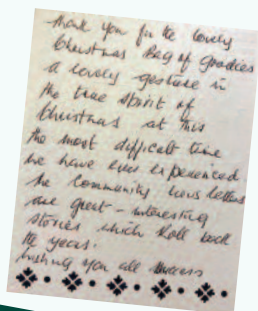 Thank you for the lovely
Christmas Bag of goodies
a lovely gesture in
the true spirit of
Christmas at this
the most difficult time
we have ever experienced.
The Community News letters
are great - interesting
stories which Roll back
the years.
Wishing you all success